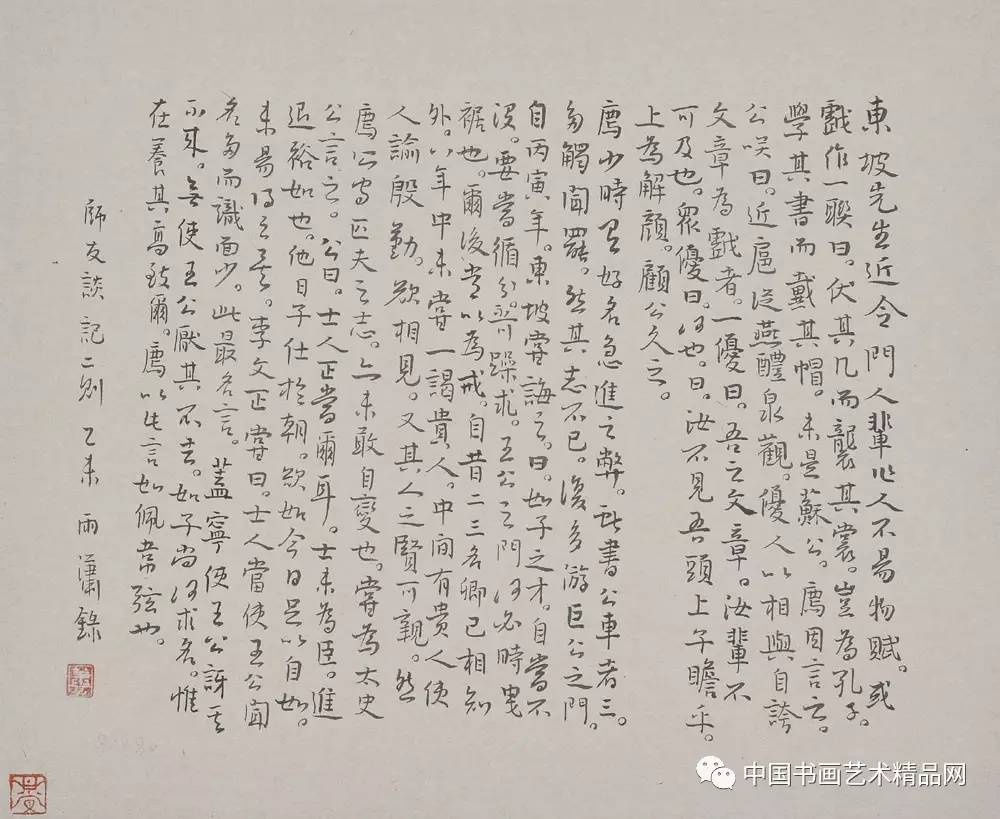 東坡先生近令門人輩作人不易物賦。或
戲作一聯曰。伏其几而襲其裳。豈為孔子。
學其書而戴其帽。未是蘇公。廌因言之。
公笑曰。近扈從燕醴泉觀。優人以相與自誇
文章為戲者。一優曰。吾之文章。汝輩不
可及也。眾優曰。何也。曰。汝不見吾頭上子瞻乎。
上為解顏。顧公久之。
廌少時有好名急進之弊。獻書公車者三。
多觸聞罷。然其志不已。復多游巨公之門。
自丙寅年。東坡嘗誨之。曰。如子之才。自當不
沒。要當循分。不可躁求。王公之門何必時曳
裾也。爾後常以為戒。自昔二三名卿已相知
外。八年中未嘗一謁貴人。中間有貴人使
人諭殷勤。欲相見。又其人之賢可親。然
廌所守匹夫之志。亦未敢自變也。嘗為太史
公言之。公曰。士人正當爾耳。士未為臣。進
退裕如也。他日子仕於朝。欲如今日足以自如。
未易得之矣。李文正嘗曰。士人當使王公聞
名多而識面少。此最名言。蓋寧使王公訝其
不來。無使王公厭其不去。如子尚何求名。惟
在養其高致爾。廌以此言如佩韋弦也。
師友談記二則 乙未 雨瀟錄
中国书画艺术精品网